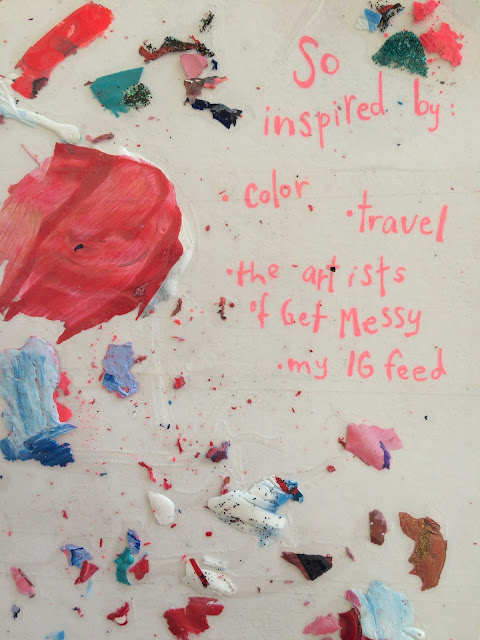 So
inspired by:
• color
• travel
• the artists
of Get Messy
• my IG feed